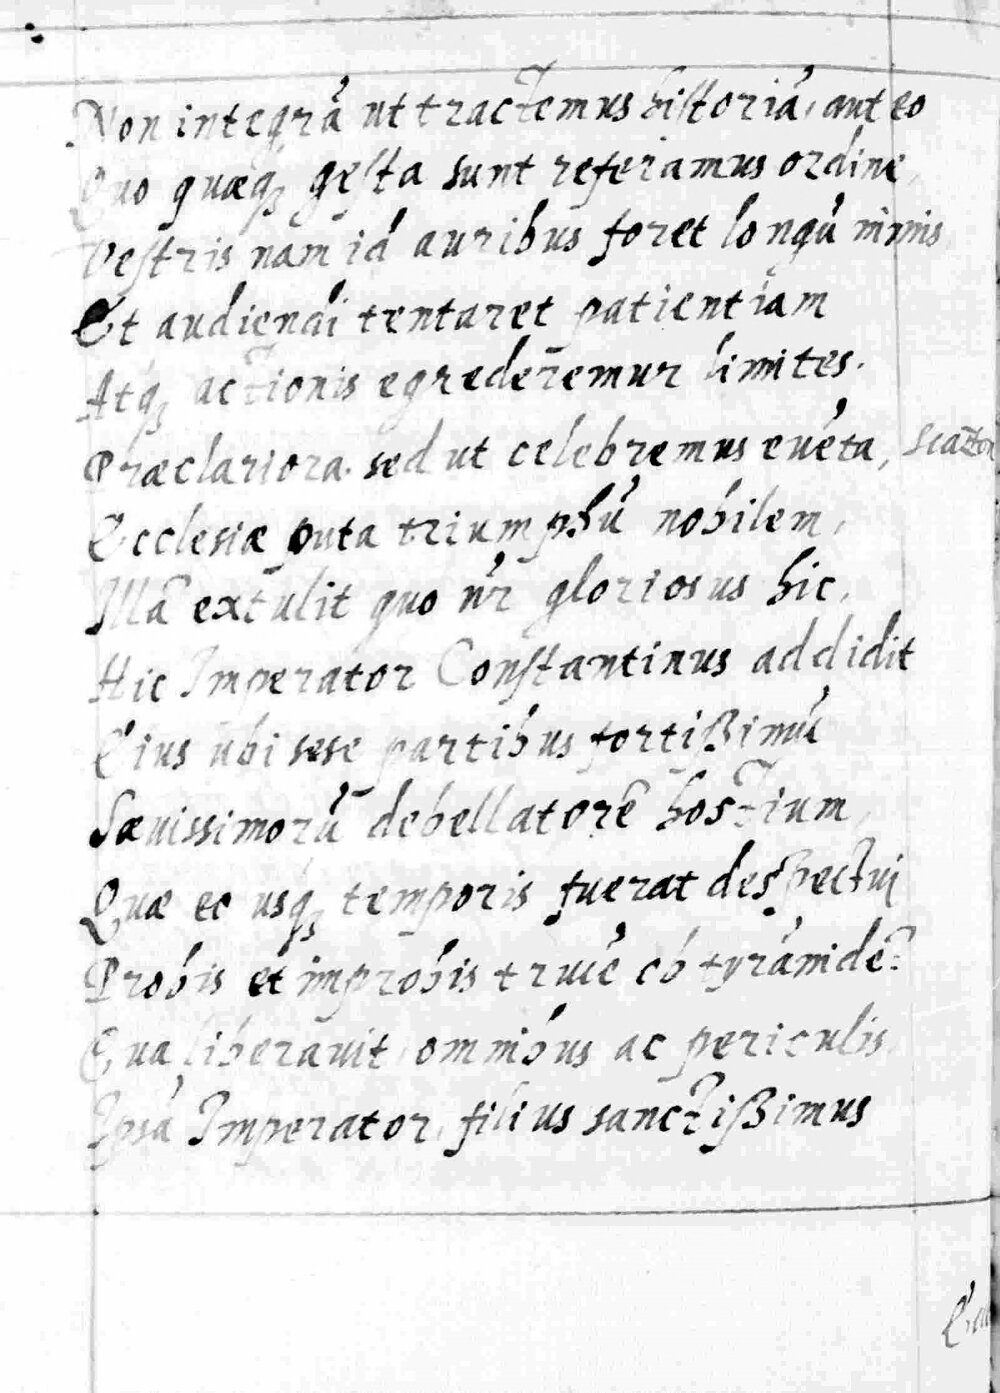 Non integrā ut tractemus historiā, aut eo
Quo quæq; gesta sunt referamus ordine,
Vestris nam id auribus foret longū nimis
Et audiendi tentaret patientiam
Atq; actionis egrederemur limites.
Præclariora sed ut celebremus euēta,
Ecclesiæ puta triumphū nobilem,
Illā extulit quo nr̄ gloriosus hic,
Hic Imperator Constantinus addidit
Eius ubi sese partibus fortißimū
Sæuissimorū debellatorē hostium,
Quæ eo usq; temporis fuerat despectui
Probis et improbis trucē ob tyrānidē:
Qua liberauit omnibus ac periculis
Ipsā Imperator, filius sanctißimus